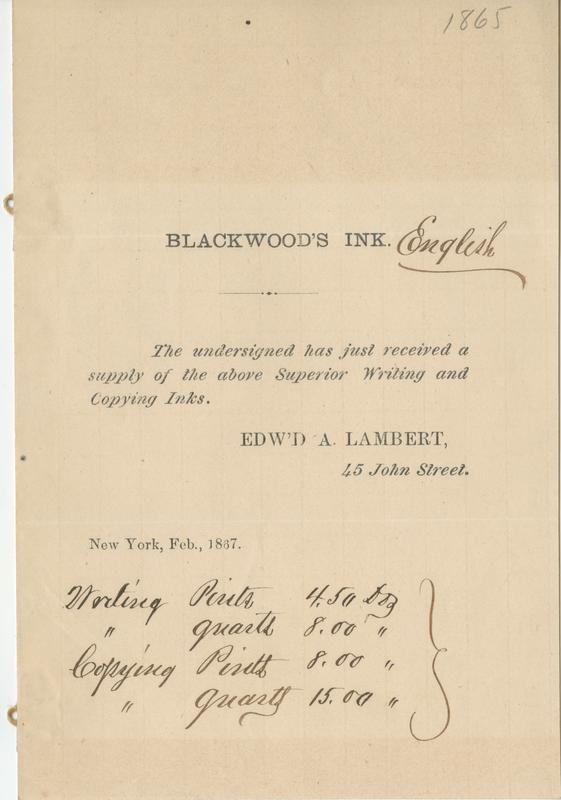 1865
BLACKWOOD'S INK. English
The undersigned has just received a
supply of the above Superior Writing and
Copying Inks.
EDW'D A. LAMBERT,
45 John Street.
New York, Feb., 1867.
Writing Pints 4.50 Doz
" quarts 8.00 "
Copying Pints 8.00 "
" quarts 15.00 "